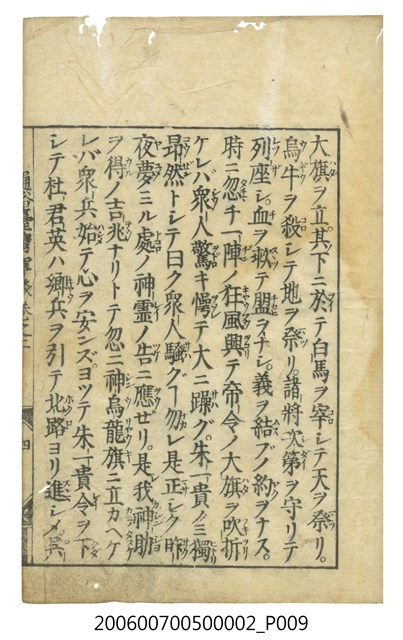 大旗ヲ立其下ニ於テ白馬ヲ宰シテ天ヲ祭リ。
烏牛ヲ殺シテ地ヲ祭リ。諸將次第ヲ守リテ
列座シ。血ヲ歃テ盟ヲナシ。義ヲ結ブノ約ヲナス。
時ニ忽チ一陣ノ狂風興テ帝令ノ大旗ヲ吹折
ケレバ衆人驚キ愕テ大ニ躁グ。朱一貴ノミ獨
昂然トシテ曰ク衆人騒グ勿レ是正シク昨
夜夢ミル處ノ神靈ノ告ニ應ゼリ。是我神助
ヲ得ノ吉兆ナリトテ忽ニ神烏龍旗ニ立カヘケ
レバ衆兵始テ心ヲ安ンズヨツテ朱一貴令ヲ下
シテ杜君英ハ郷兵ヲ引テ北路ヨリ進シメ呉
四
200600700500002_P009